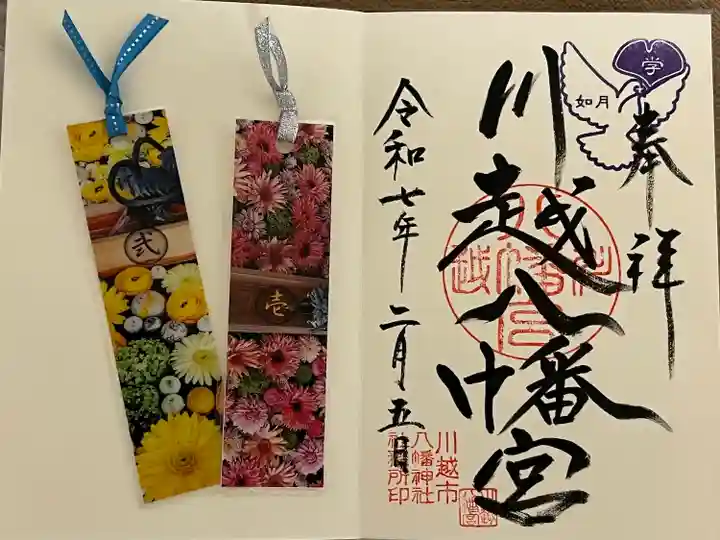 奉
祥
学
如月
川越八幡宮
令和七年二月五日
川越市
八幡神社
社務所印
弐
壱